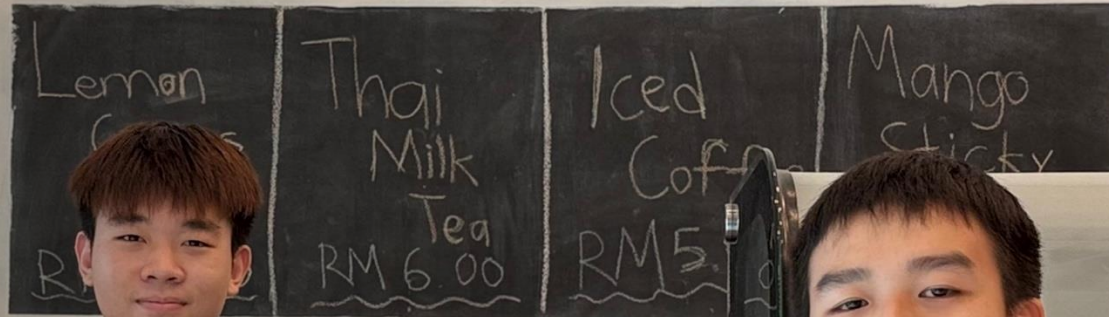 Lemon
Thai
Milk
Tea
RM 6.00
Iced
RM5.
Mango
Sticky